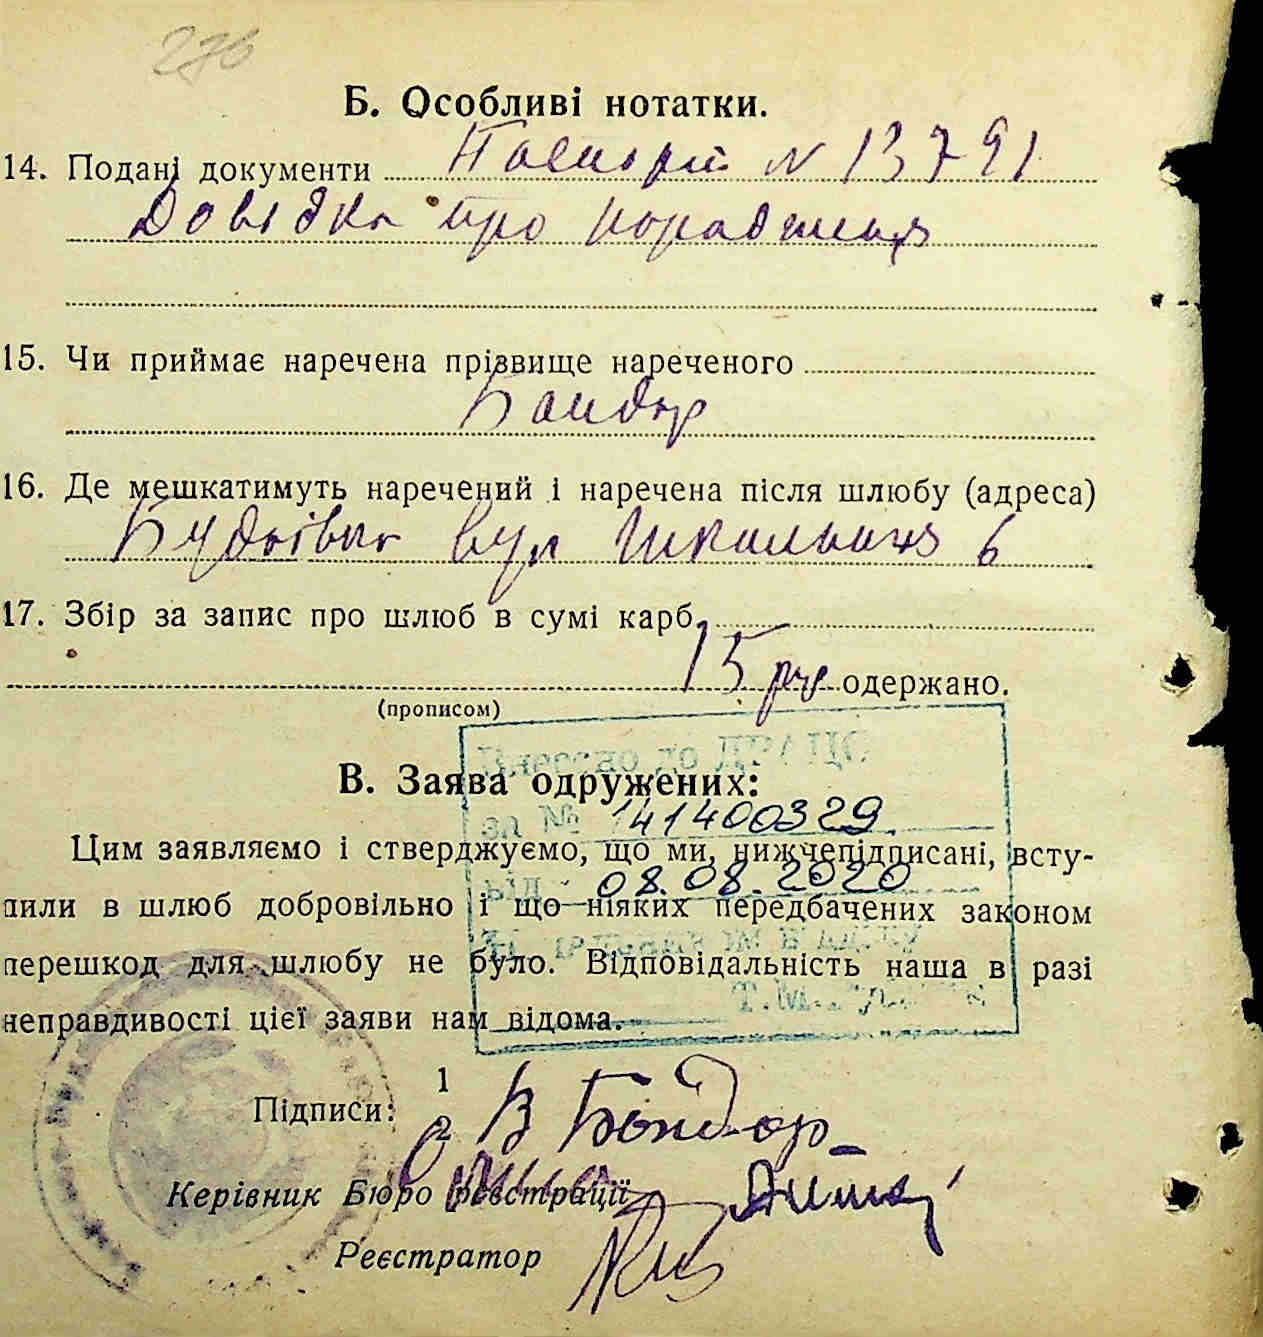 276
Б. Особливі нотатки.
14. Подані документи Паспорт N 13791
Довідка про народження
15. Чи приймає наречена прізвище нареченого
Бондар
16. Де мешкатимуть наречений і наречена після шлюбу (адреса)
вул Шкільная 6
17. Збір за запис про шлюб в сумі карб.
15 одержано.
(прописом)
В. Заява одружених:
за № 141400329
Цим заявляємо і стверджуємо, що ми, нижчепідписані, всту-
від 08.08.2020
пили в шлюб добровільно і що ніяких передбачених законом
перешкод для шлюбу не було. Відповідальність наша в разі
неправдивості цієї заяви нам відома.
Підписи: 1
2 В Бондар
Керівник Бюро реєстрації
Реєстратор